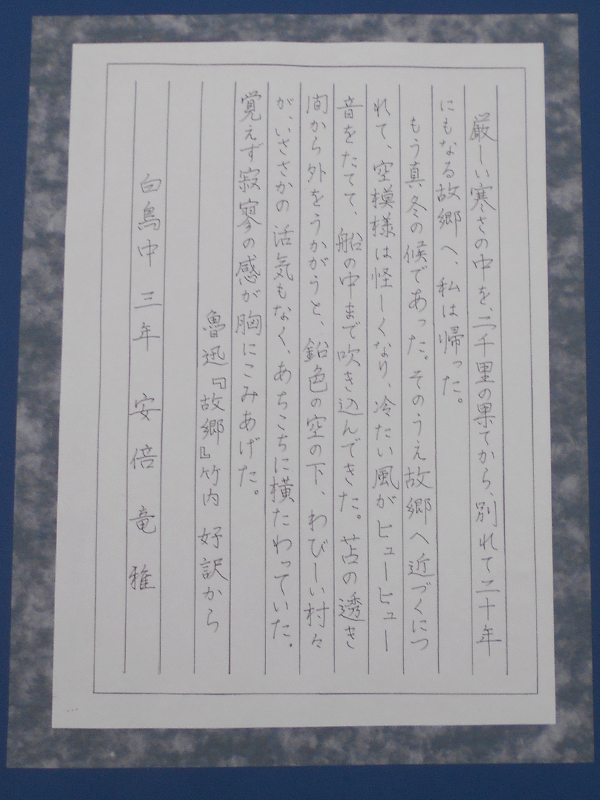 厳しい寒さの中を、二千里の果てから、別れて二十年
にもなる故郷へ、私は帰った。
もう真冬の候であった。そのうえ故郷へ近づくにつ
れて、空模様は怪しくなり、冷たい風がヒューヒュー
音をたてて、船の中まで吹き込んできた。苫の透き
間から外をうかがうと、鉛色の空の下、わびしい村々
が、いささかの活気もなく、あちこちに横たわっていた。
覚えず寂寥の感が胸にこみあげた。
魯迅『故郷』竹内 好訳から
白鳥中 三年 安倍 竜雅